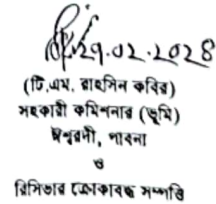 ২৭.০২.২০২৪
(টি.এম. রাহসিন কবির)
সহকারী কমিশনার (ভূমি)
ঈশ্বরদী, পাবনা
ও
রিসিভার ক্রোকাবদ্ধ সম্পত্তি